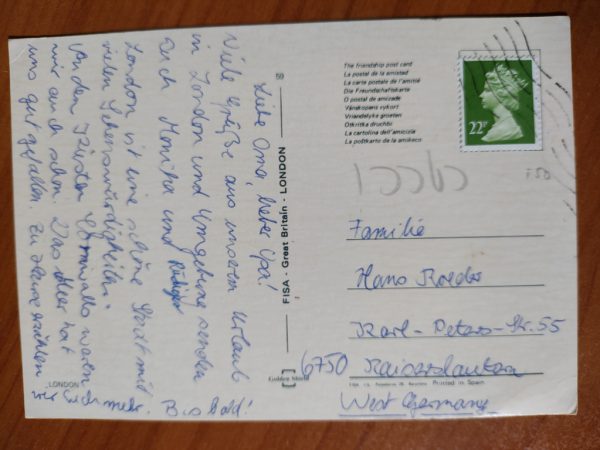 Liebe Oma, lieber Opa!
Viele Grüße aus unserem Urlaub
in London und Umgebung senden
Euch Monika und Rüdiger
London ist eine schöne Stadt mit
vielen Sehenswürdigkeiten.
An den Küsten Cornwalls waren
wir auch schon. Das Meer hat
uns gut gefallen. Zu Hause erzählen
wir Euch mehr. Bis bald!
LONDON
59
FISA - Great Britain - LONDON
Golden Shield
The friendship post card
La postal de la amistad
La carte postale de l'amitié
Die Freundschaftskarte
O postal de amizade
Vänskapens vykort
Vriendelyke groeten
Otkritka druchbi
La cartolina dell'amicizia
La poŝtkarto de la amikeco
22P
Familie
Hans Roeder
Karl-Peters-Str. 55
6750 Kaiserslautern
West Germany
Printed in Spain